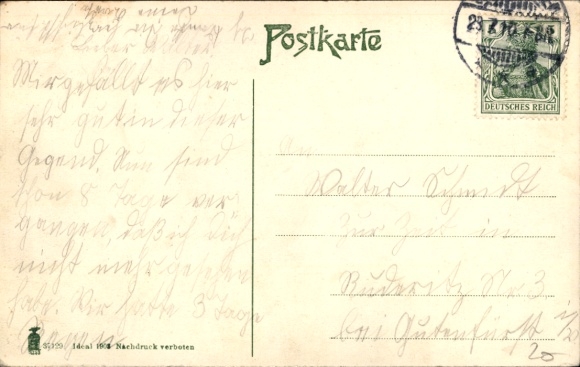 Postkarte
DEUTSCHES REICH
Lieber
Mir gefällt es hier
sehr gut in dieser
Gegend. Nun sind
schon 8 Tage ver
gangen, daß ich Dich
nicht mehr gesehen
habe. Wir hatte 3 Tage
Regen
An
Walter Schmidt
zur Zeit in
Ruderitz Nr 3
bei Gutenfürst i/
20
Ideal Nachdruck verboten